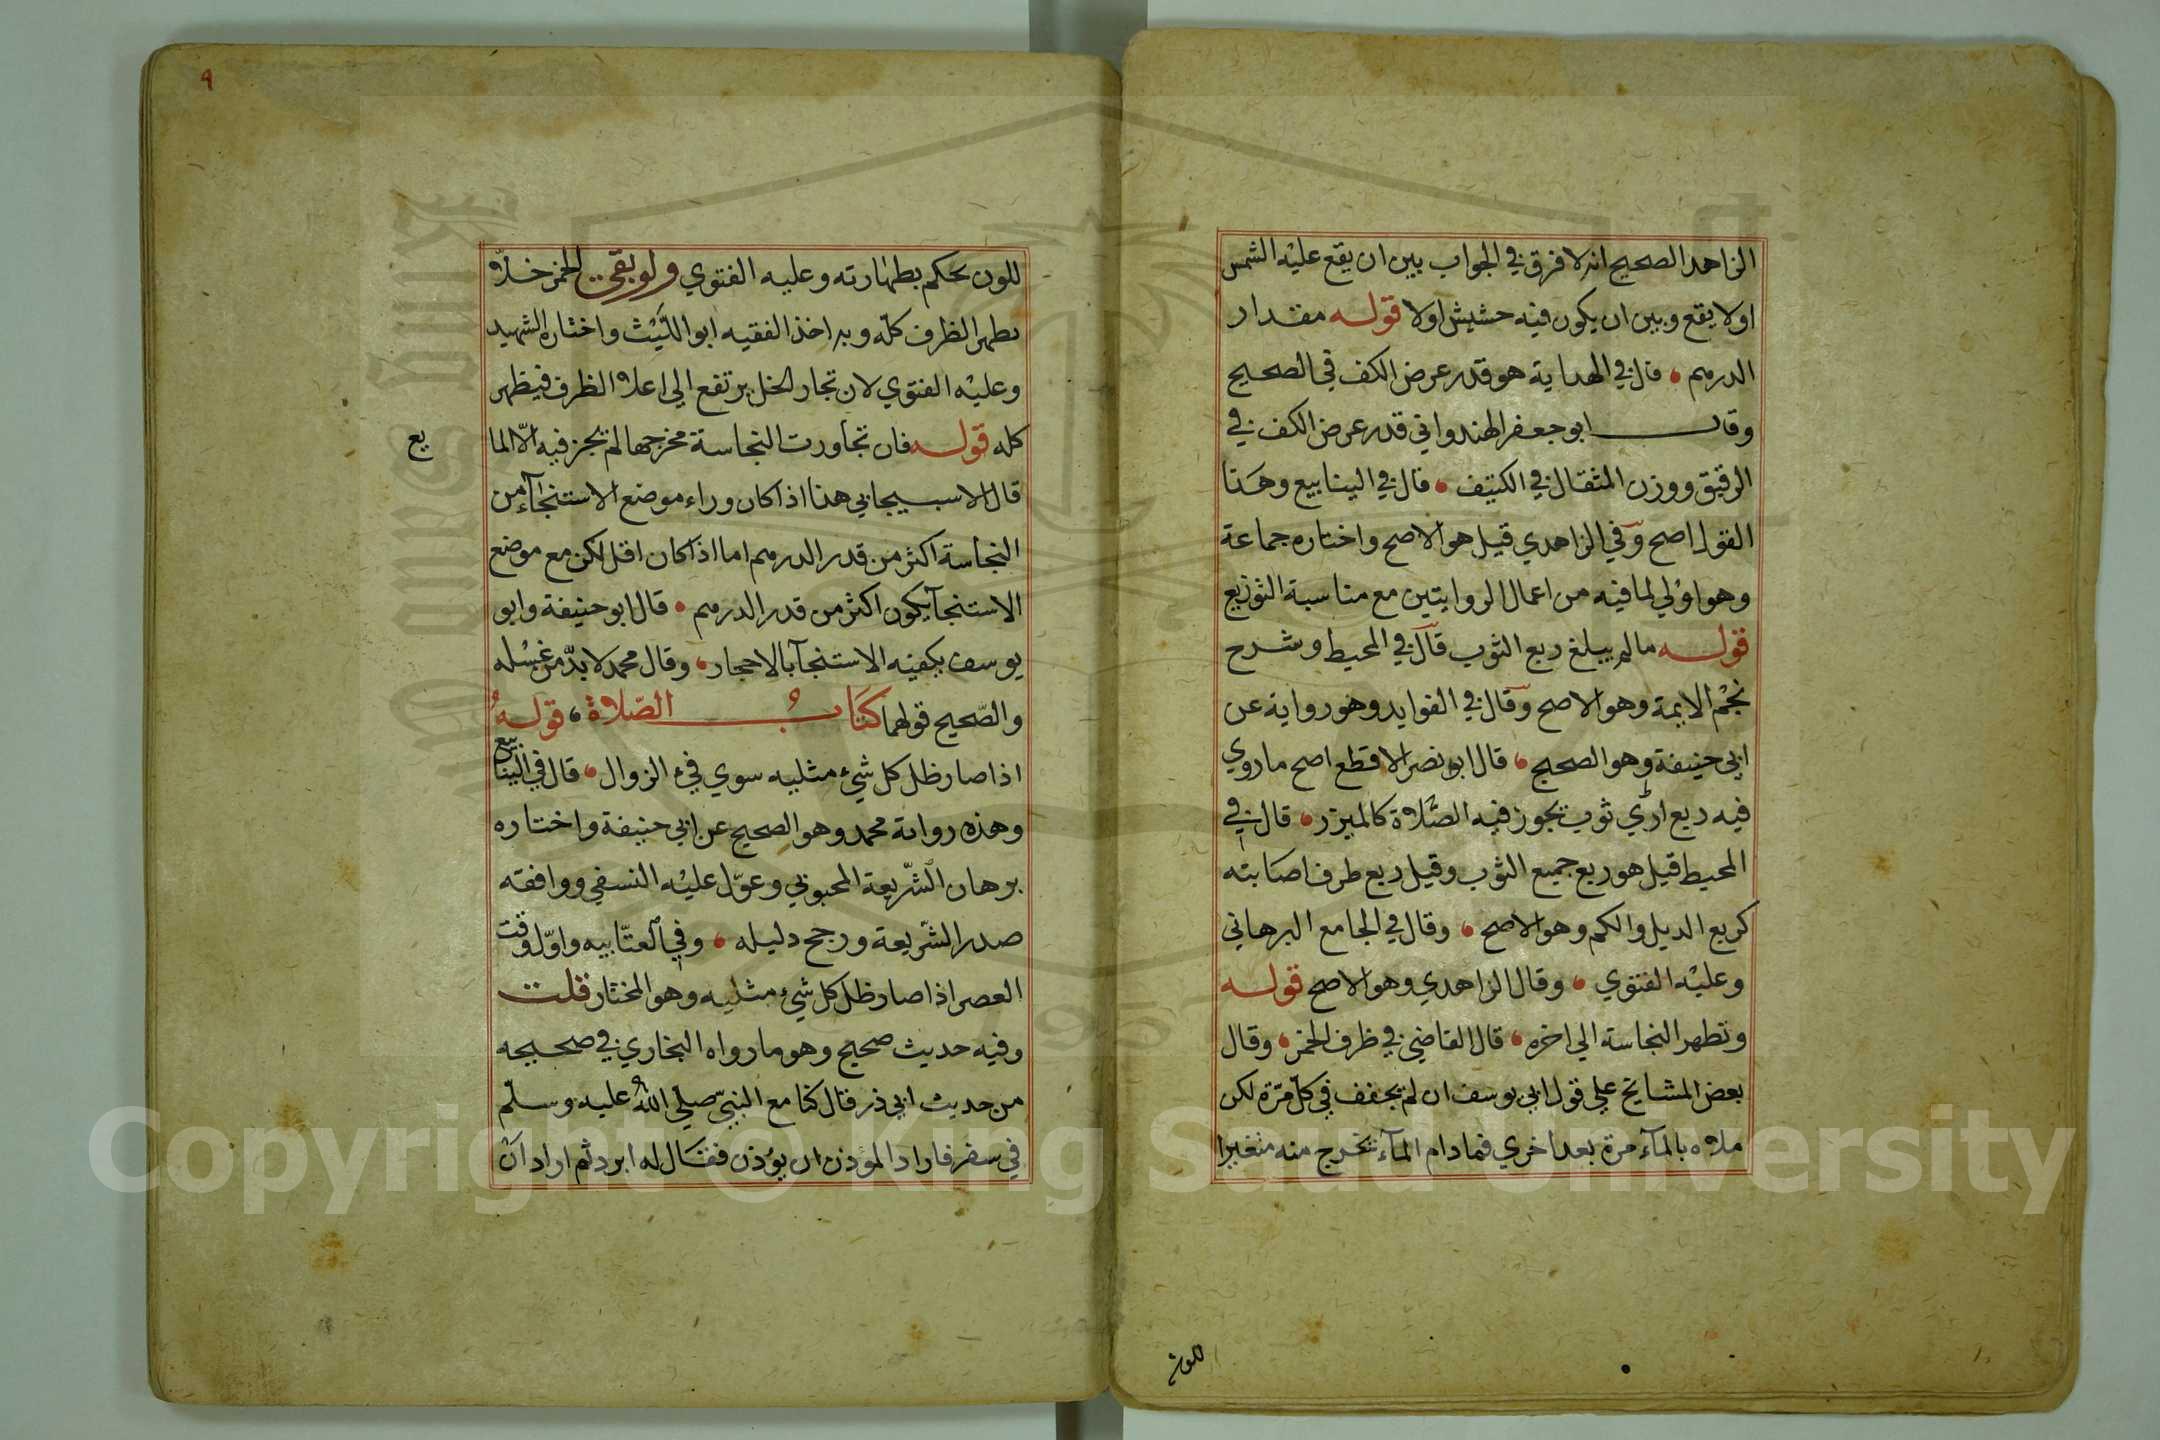 الزاهد الصحيح انه لا فرق في الجواب بين ان يقع عليه الشمس
اولا يقع وبين ان يكون فيه حشيش اولا قوله مقدار
الدرهم قال في الهداية هو قدر عرض الكف في الصحيح
وقال ابو جعفر الهندواني قدر عرض الكف في
الرقيق ووزن المثقال في الكثيف قال في الينابيع وهذا
القول اصح وفي الزاهدي قيل هو الاصح واختاره جماعة
وهو اولي لما فيه من اعمال الروايتين مع مناسبة التوزيع
قوله ما لم يبلغ ربع الثوب قال في المحيط وشرح
نجم الايمة وهو الاصح وقال في الفوايد وهو رواية عن
ابي حنيفة وهو الصحيح قال ابو نصر الاقطع اصح ما روي
فيه ربع ادني ثوب تجوز فيه الصلاة كالميزر قال في
المحيط قيل هو ربع جميع الثوب وقيل ربع طرف اصابته
كربع الديل والكم وهو الاصح وقال في الجامع البرهاني
وعليه الفتوي وقال الزاهدي وهو الاصح قوله
وتطهر النجاسة الي اخره قال القاضي في ظرف الخمر وقال
بعض المشايخ علي قول ابي يوسف ان لم يجفف في كل مرة لكن
ملاه بالمآء مرة بعد اخري فما دام المآء تخرج منه متغيرا
للون
٩
للون يحكم بطهارته وعليه الفتوي ولو بقي الخمر خلا
يطهر الظرف كله وبه اخذ الفقيه ابو الليث واختاره الشهيد
وعليه الفتوي لان تجار الخل يرتفع الي اعلا الظرف فيطهر
كله قوله فان تجاورت النجاسة مخرجها لم يجز فيه الا الما
يع
قال الاسبيجابي هذا اذا كان وراء موضع الاستنجآء من
النجاسة اكثر من قدر الدرهم اما اذا كان اقل لكن مع موضع
الاستنجآ يكون اكثر من قدر الدرهم قال ابو حنيفة وابو
يوسف يكفيه الاستنجآ بالاحجار وقال محمد لا بد من غسله
والصحيح قولهما كتاب الصلاة قوله
اذا صار ظل كل شيء مثليه سوي فيء الزوال قال في الينابيع
وهذه رواية محمد وهو الصحيح عن ابي حنيفة واختاره
برهان الشريعة المحبوبي وعول عليه النسفي ووافقه
صدر الشريعة ورجح دليله وفي العتابيه واول وقت
العصر اذا صار ظل كل شيء مثليه وهو المختار قلت
وفيه حديث صحيح وهو ما رواه البخاري في صحيحه
من حديث ابي ذر قال كنا مع النبي صلي الله عليه وسلم
في سفر فاراد المؤذن ان يؤذن فقال له ابرد ثم اراد ان
Copyright © King Saud University